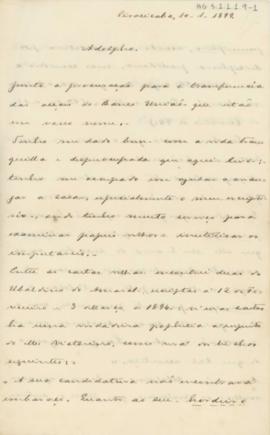 AG 3.1.1.9-1
Piracicaba, 20. 1. 1899
Adolpho.
Junto a procuração para a transferencia
das acções do Banco União, que estão
em vosso nome.
Tenho me dado bem com a vida tran-
quilla e despreocupada que aqui levo;
tenho me occupado em ajudar a arran-
jar a casa, especialmente o meu escripto-
rio, onde tenho muito serviço para
examinar papeis velhos e inutilisar os
imprestaveis.
Entre as cartas velhas encontrei duas do
Ubaldino do Amaral, escriptas a 12 de Fe-
vereiro e 3 Março de 1894. N'uma carta
ha uma verdadeira prophecia a respeito
do
como verá os trechos
seguintes:
A sua candidatura não encontrará
embaraço. Quanto ao seu